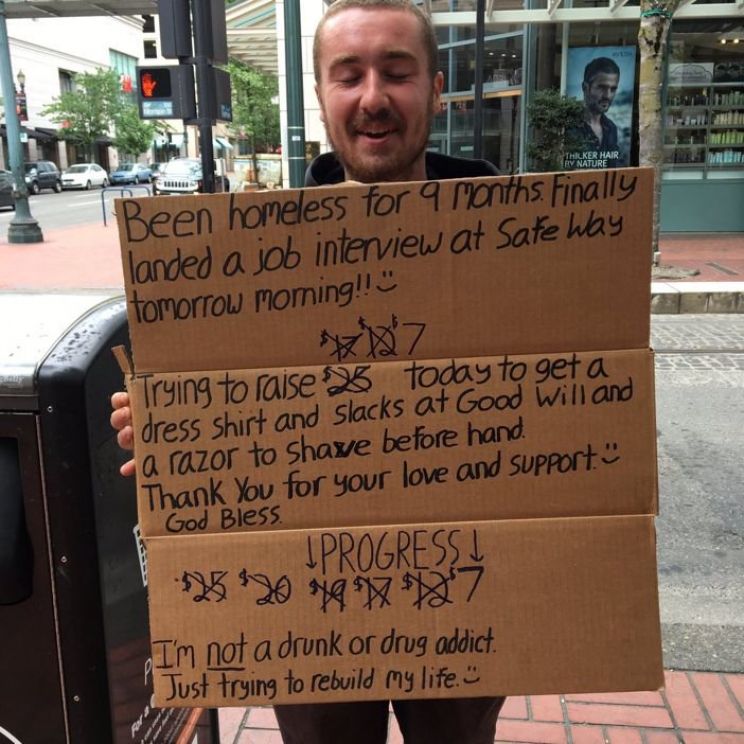 THICKER HAIR
BY NATURE
Been homeless for 9 months. Finally
landed a job interview at Safe Way
tomorrow morning!!
$17 $12 $7
Trying to raise $25 today to get a
dress shirt and slacks at Good Will and
a razor to shave before hand.
Thank You for your love and support.
God Bless.
↓PROGRESS↓
$25 $20 $19 $17 $12 $7
I'm not a drunk or drug addict.
Just trying to rebuild my life.